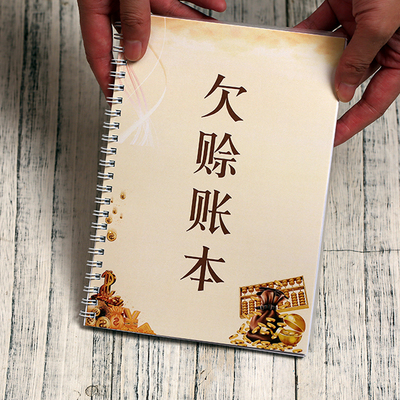 欠赊账本